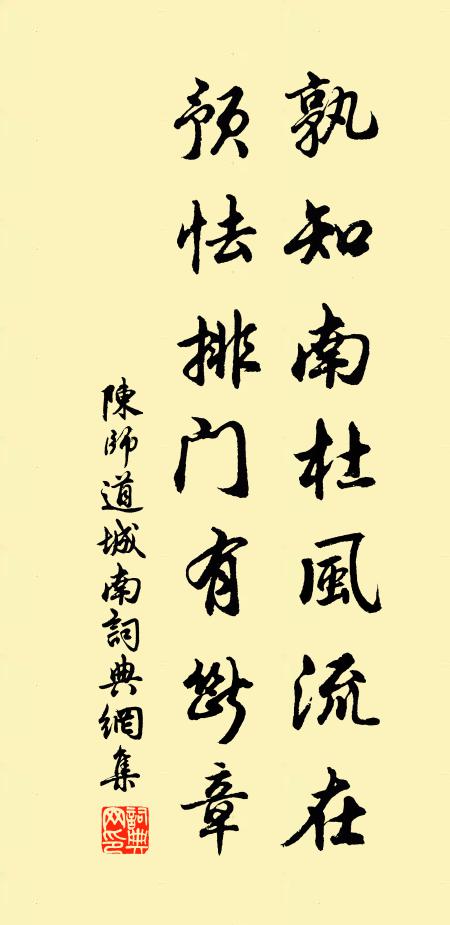 孰知南杜風流在
預怯排門有斷章
陳師道城南詞典網集
詞典網印